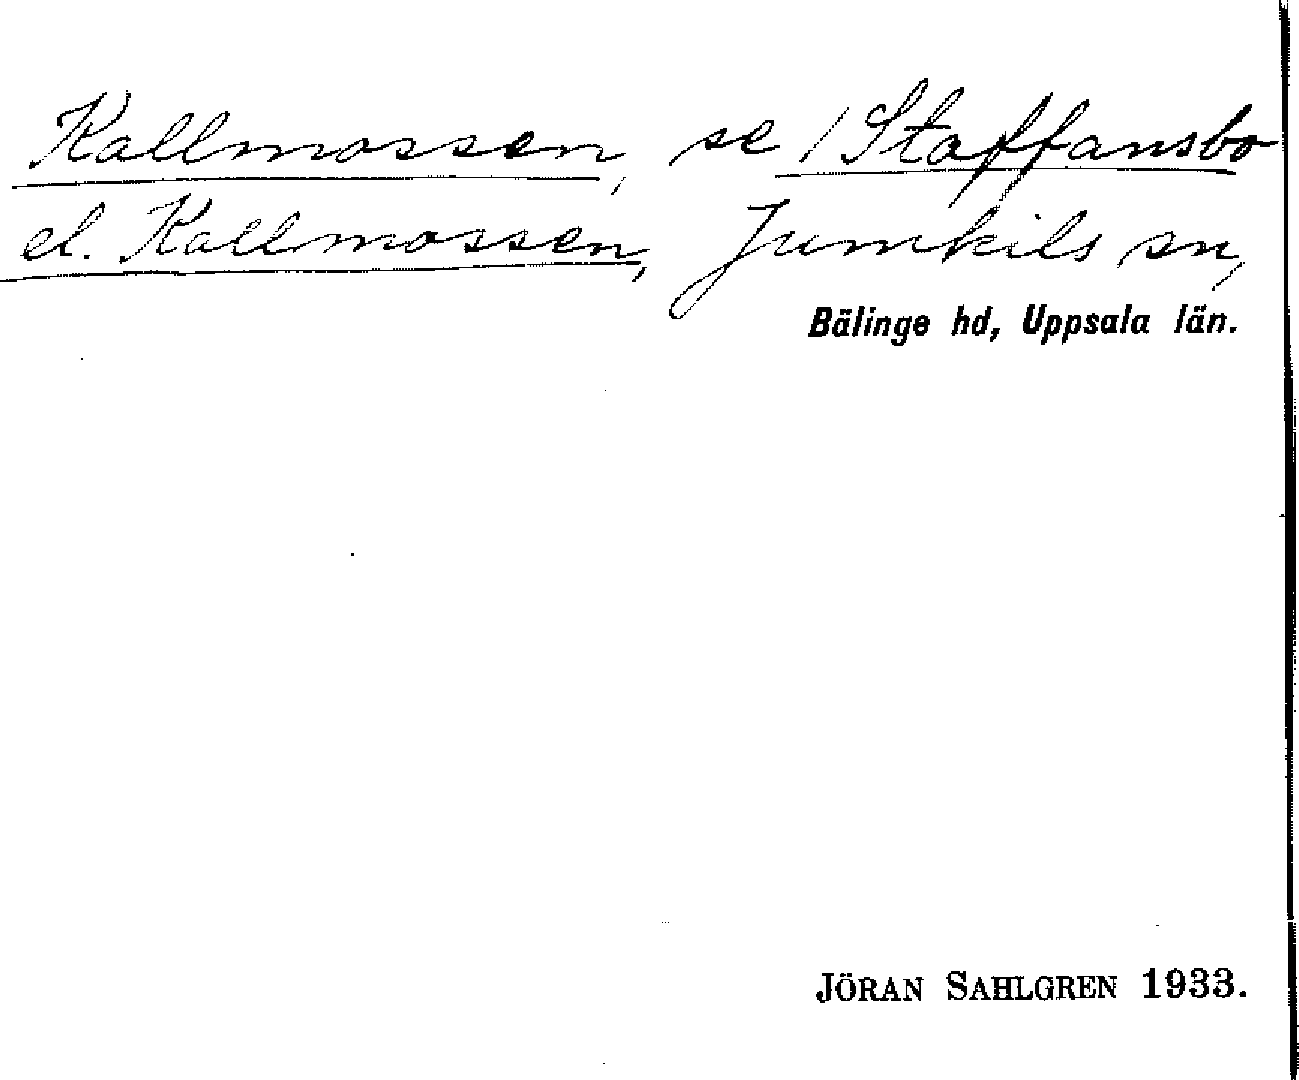 Kallmossen, se /Staffansbo
el. Kallmossen, Jumkils sn,
Bälinge hd, Uppsala län.
JÖRAN SAHLGREN 1933.